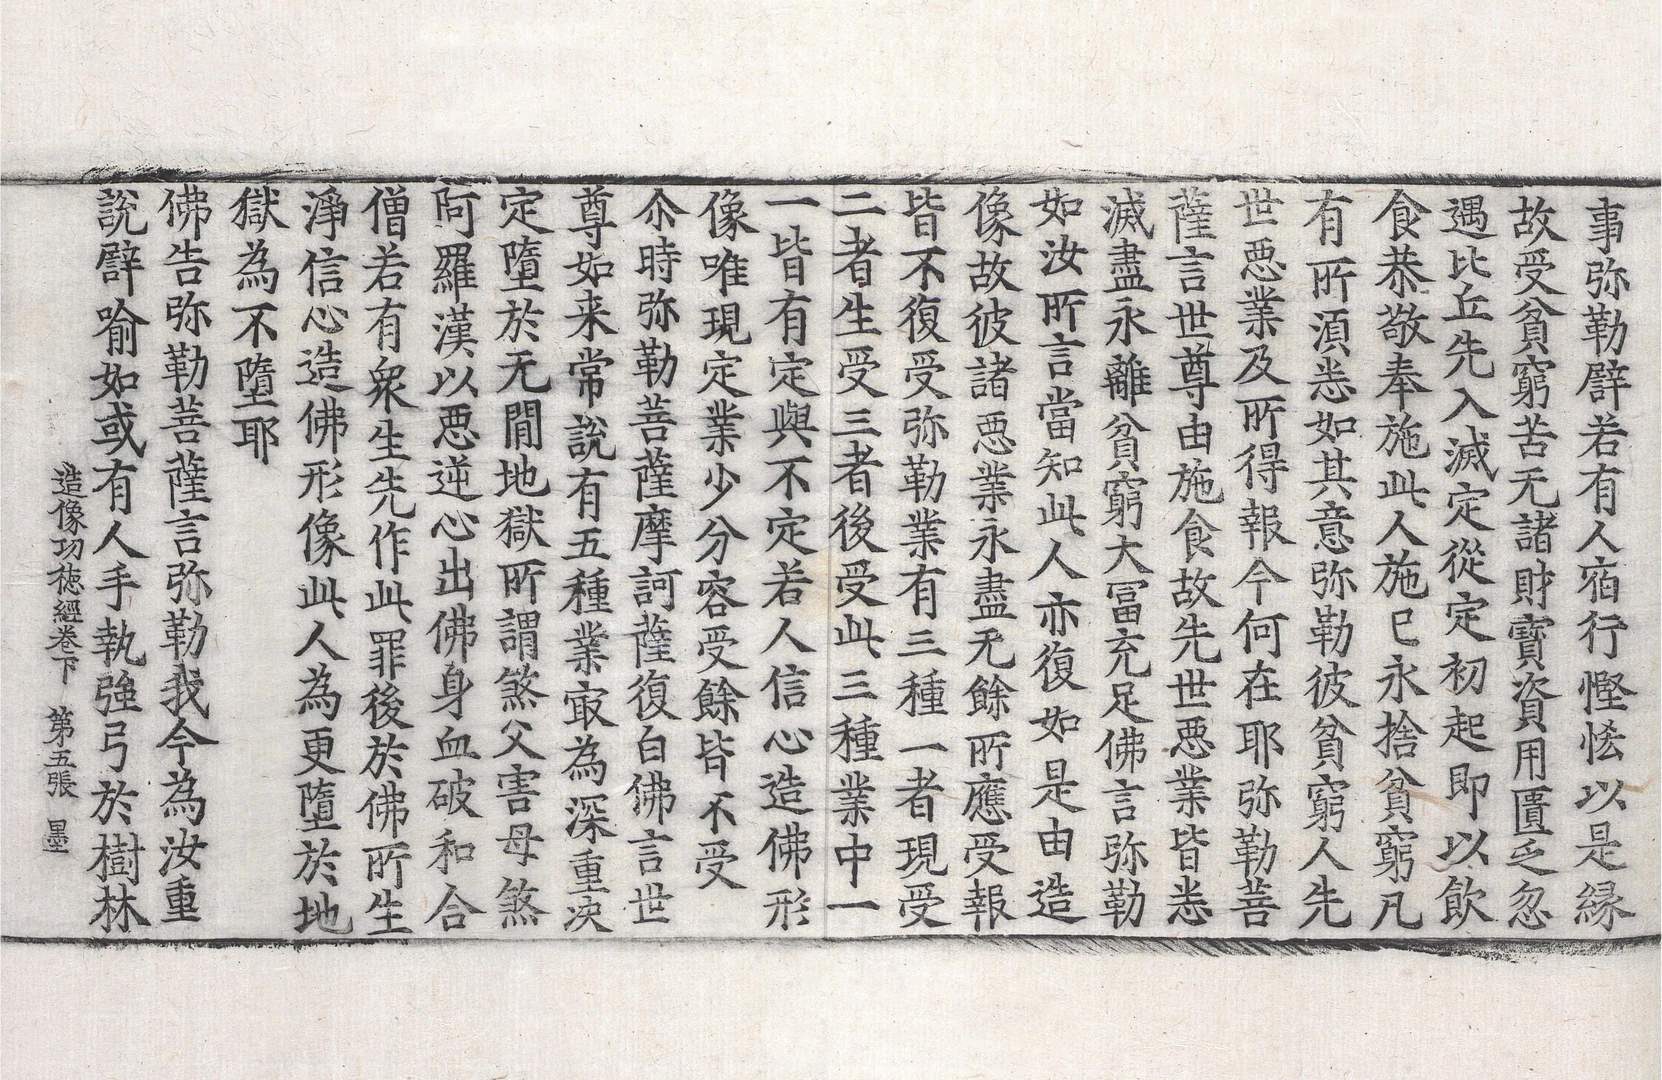 事弥勒譬若有人宿行慳悋以是緣
故受貧窮苦无諸財寶資用匱乏忽
遇比丘先入滅定從定初起即以飲
食恭敬奉施此人施已永捨貧窮凡
有所須悉如其意弥勒彼貧窮人先
世惡業及所得報今何在耶弥勒菩
薩言世尊由施食故先世惡業皆悉
滅盡永離貧窮大冨充足佛言弥勒
如汝所言當知此人亦復如是由造
像故彼諸惡業永盡无餘所應受報
皆不復受弥勒業有三種一者現受
二者生受三者後受此三種業中一
一皆有定與不定若人信心造佛形
像唯現定業少分容受餘皆不受
尒時弥勒菩薩摩訶薩復白佛言世
尊如来常說有五種業㝡為深重决
定墮於无閒地獄所謂煞父害母煞
阿羅漢以惡逆心出佛身血破和合
僧若有衆生先作此罪後於佛所生
淨信心造佛形像此人為更墮於地
獄為不墮耶
佛告弥勒菩薩言弥勒我今為汝重
說譬喻如或有人手執強弓於樹林
造像功徳經卷下 第五張 墨